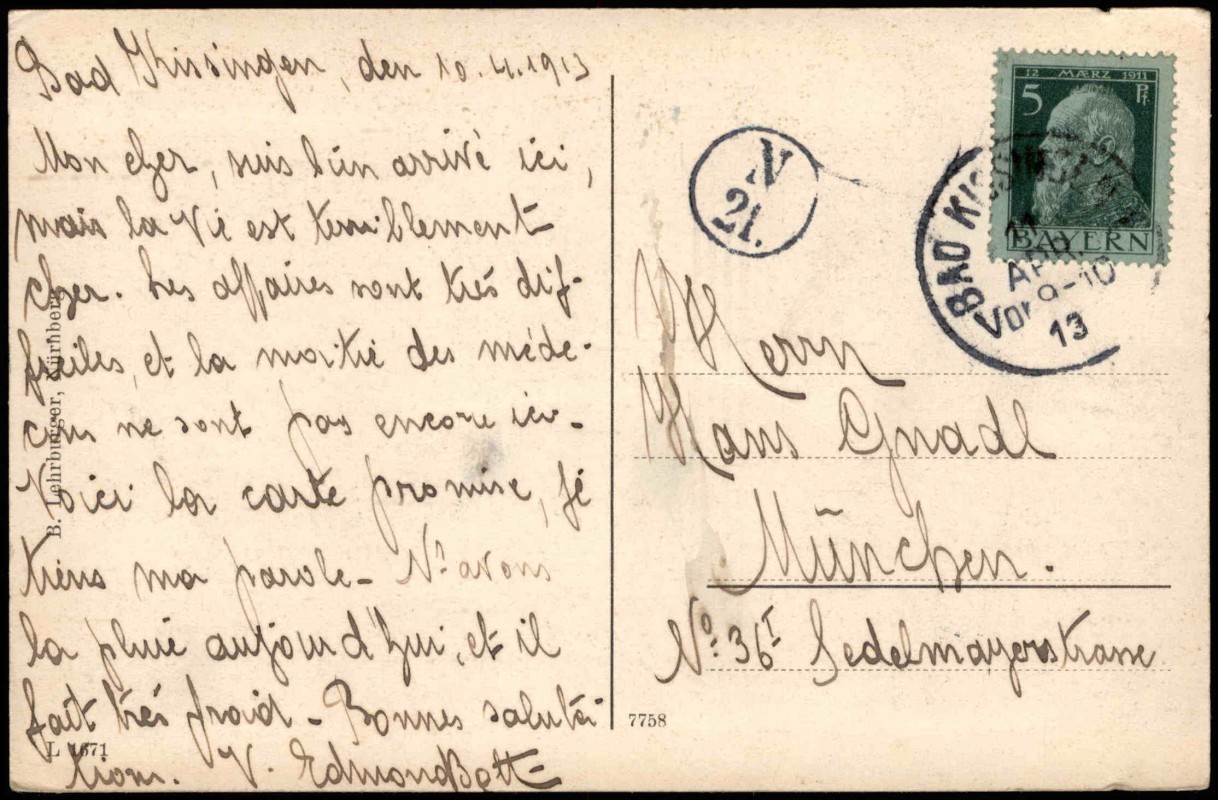 Bad Kissingen, den 10.4.1913
Mon cher, suis bien arrivé ici,
mais la vie est terriblement
cher. Les affaires sont très dif-
ficiles, et la moitié des méde-
cins ne sont pas encore ici-
Voici la carte promise, je
tiens ma parole- Ns avons
la pluie aujourd'hui, et il
fait très froid - Bonnes saluta-
tions. V. Edmond Bett
B. Lehrburger, Nürnberg
L 1671
7758
12 MÆRZ 1911
5 Pf.
BAYERN
BAD KISSINGEN
11
APR.
Vor 9-10
13
N
21.
Herrn
Hans Gnadl
München.
No. 36 I Sedelmayerstrasse